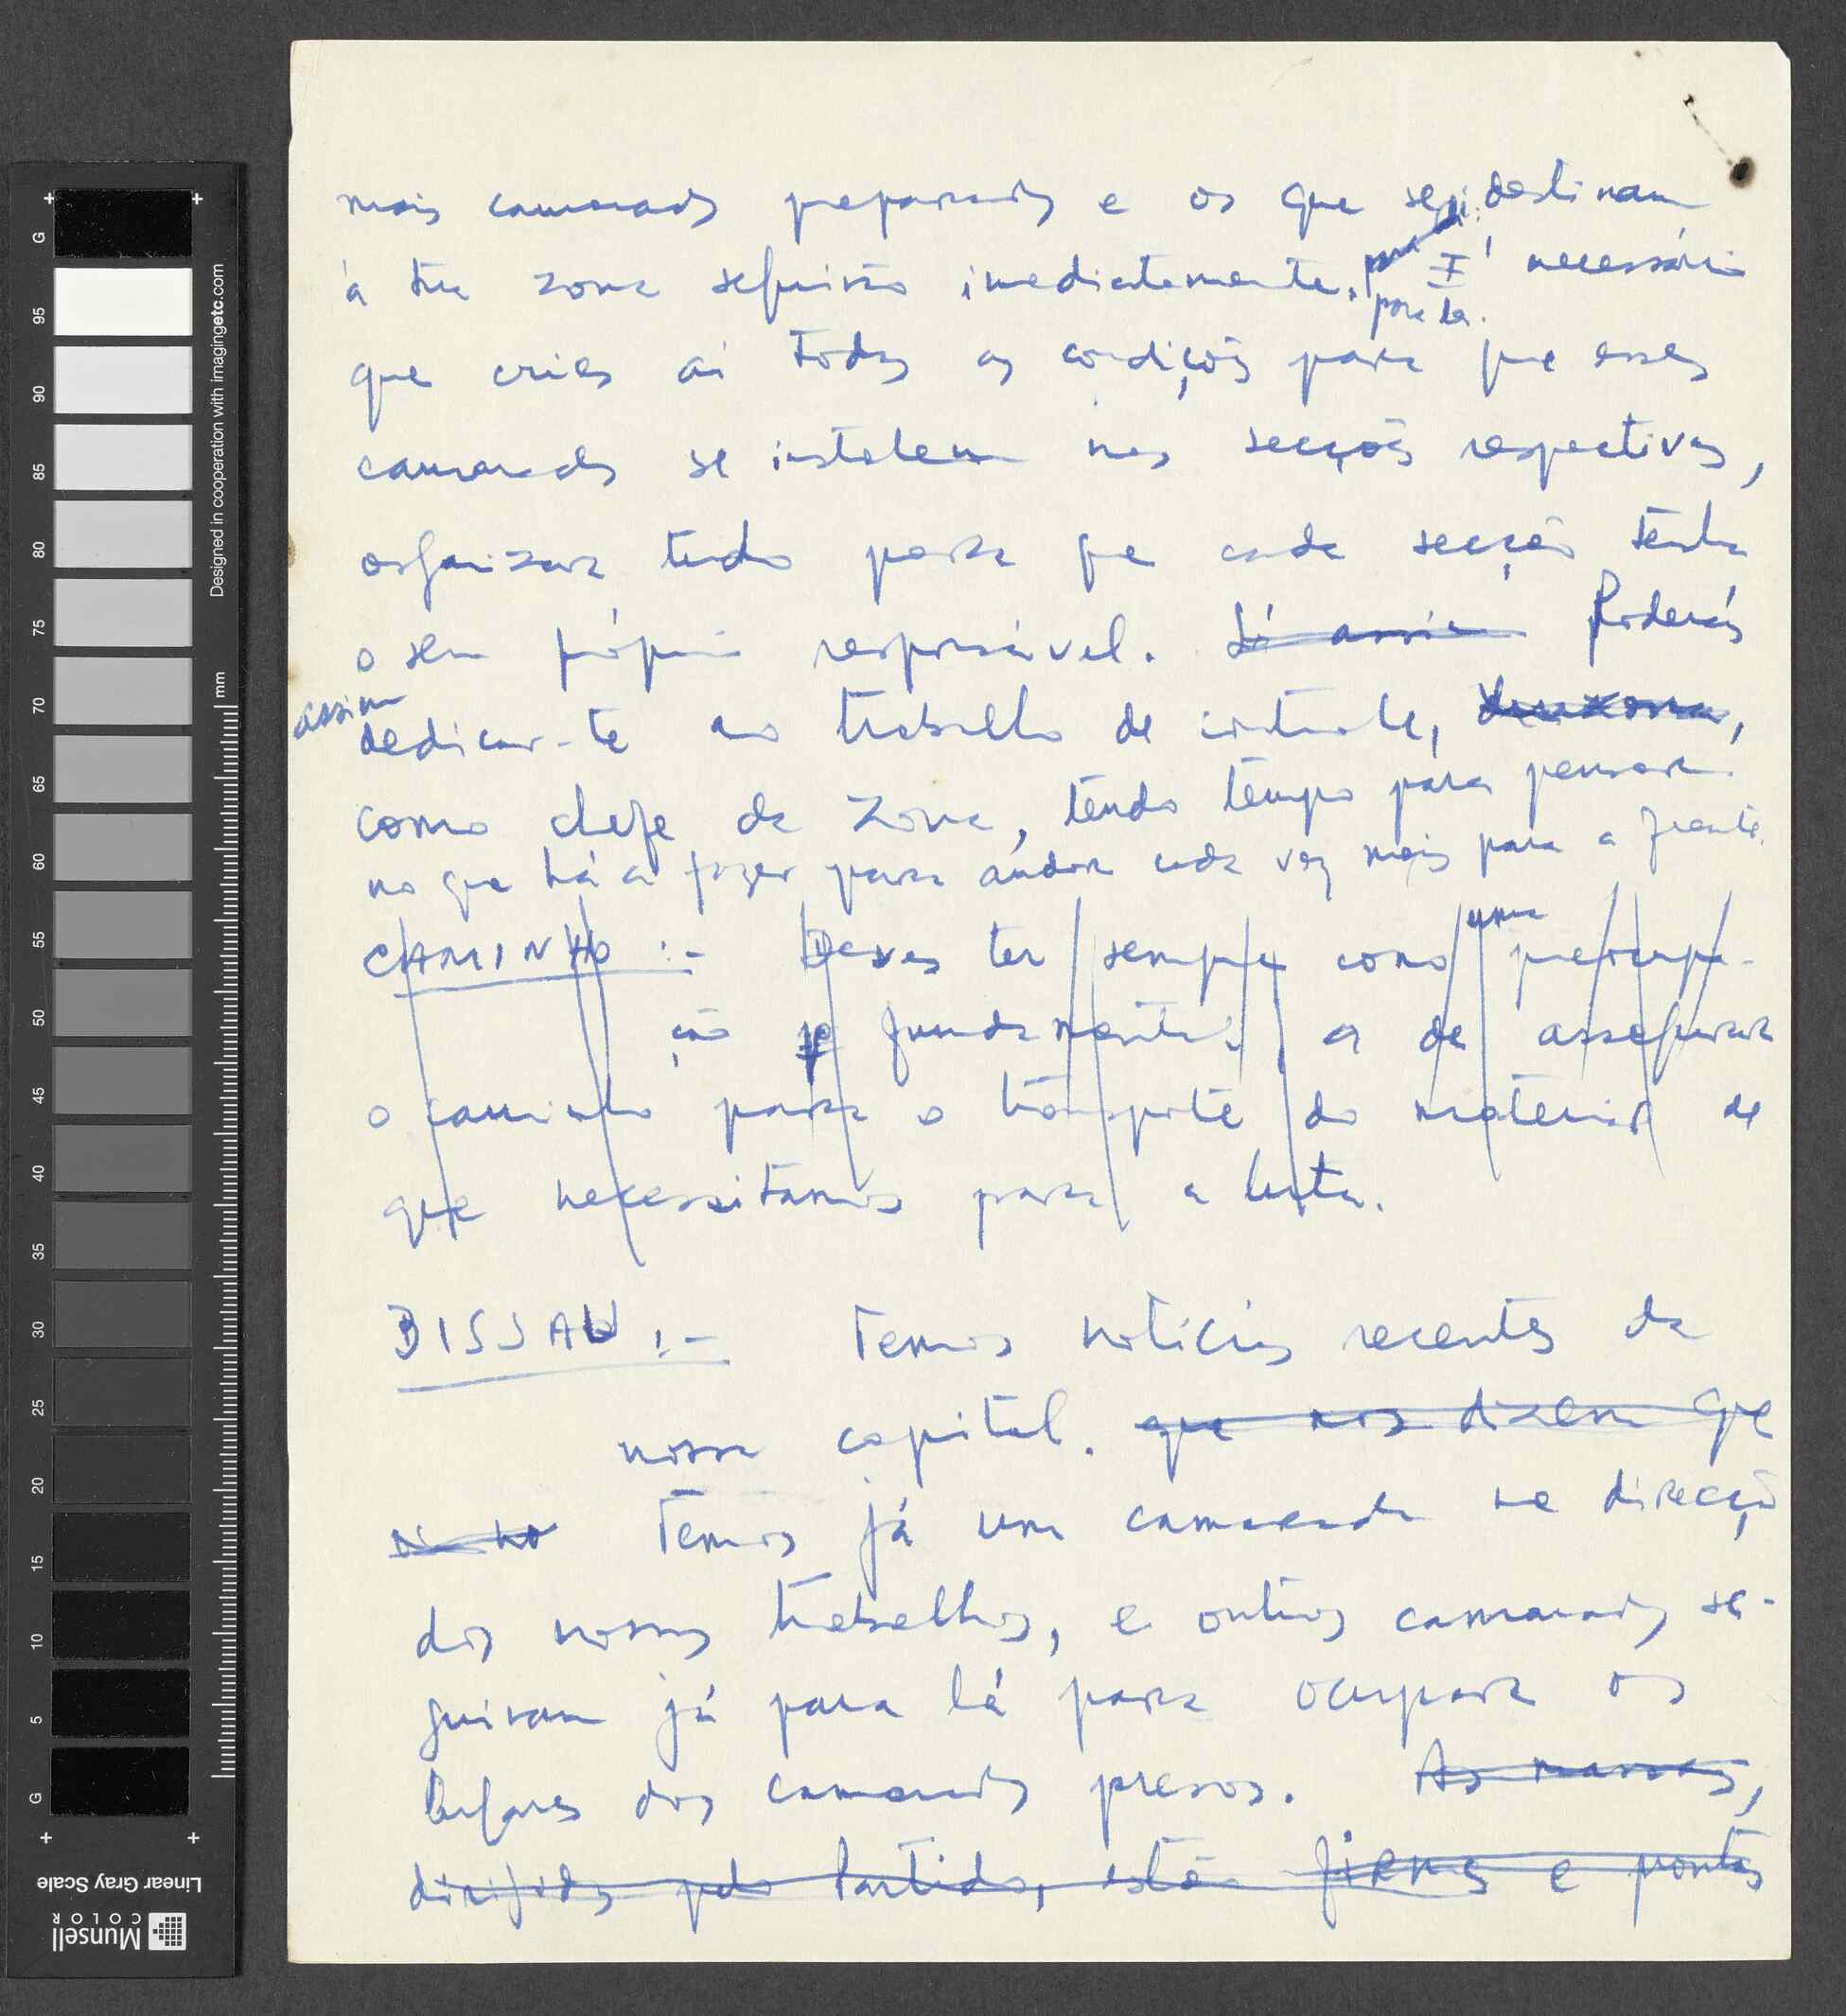 mais camaradas preparados e os que se destinam
à tua zona seguirão imediatamente. para lá. É necessário
que cries aí todas as condições para que esses
camaradas se instalem nas secções respectivas,
organizar tudo para que cada secção tenha
o seu próprio responsável. Só assim Poderás
assim
dedicar-te ao trabalho de controle,
como chefe da zona, tendo tempo para pensar
no que há a fazer para andar cada vez mais para a frente.
CAMINHO :- Deves ter sempre como uma preocupa-
ção fundamental, a de assegurar
o caminho para o transporte do material de
que necessitamos para a luta.
BISSAU :- Temos notícias recentes da
nossa capital. que nos dizem que
Temos já um camarada na direcção
dos nossos trabalhos, e outros camaradas se-
guiram já para lá para ocupar os
lugares dos camaradas presos. As massas,
dirigidas pelo Partido, estão firmes e prontas
Designed in cooperation with imagingetc.com
mm
G 95 90 85 80 75 70 65 60 55 50 45 40 35 30 25 20 15 10 5 G
Linear Gray Scale
Munsell
COLOR